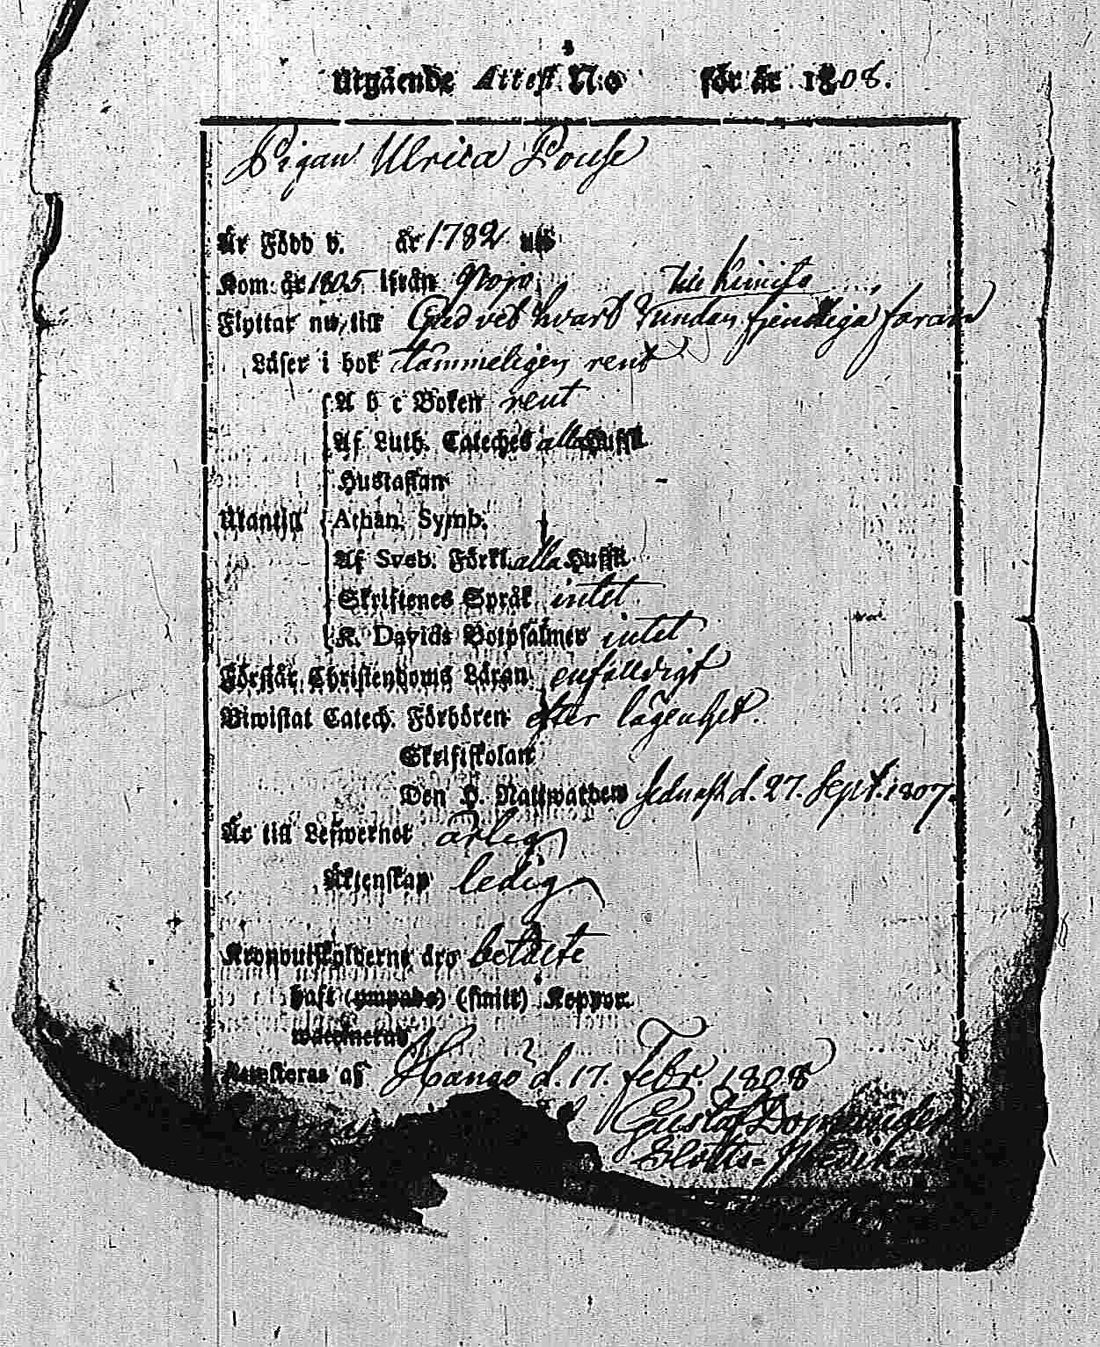 Utgående Attest N:o för år 1808.
Pigan Ulrica Louse
Är Född d. år 1782 uti
Kom år 1805 ifrån Pojo
till Kimito
Flyttar nu till Gud vet hvart undan fiendtliga faran
Läser i bok tämmeligen rent
A b c Boken rent
Af Luth. Cateches alla Hufst.
Hustaflan
Utantill Athan. Symb.
Af Sveb. Förkl. alla Hufst.
Skriftenes Språk intet
K. Davids Botpsalmer intet
Förstår Christendoms Läran enfalldigt
Biwistat Catech. Förhören efter lägenhet.
Skriftskolan
Den H. Nattwarden sednast d. 27. Sept. 1807.
Är till Lefwernet ärlig
Äktenskap ledig
Kronoutskylderne äro betalte
haft (umpade) (små) Koppor.
waccinerad
Attesteras af Hangö d. 17. Febr. 1808
Gustaf
Slotts-